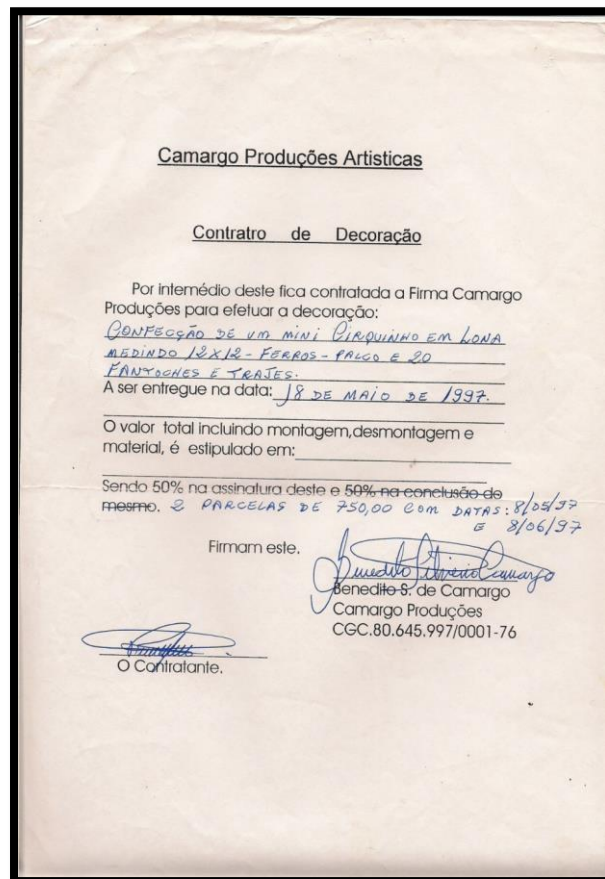 Camargo Produções Artisticas
Contratro de Decoração
Por intemédio deste fica contratada a Firma Camargo
Produções para efetuar a decoração:
CONFECÇÃO DE UM MINI CIRQUINHO EM LONA
MEDINDO 12X12 - FERROS - PALCO E 20
FANTOCHES E TRAJES.
A ser entregue na data: 18 DE MAIO DE 1997.
O valor total incluindo montagem,desmontagem e
material, é estipulado em:
Sendo 50% na assinatura deste e 50% na conclusão do
mesmo. 2 PARCELAS DE 750,00 COM DATAS: 8/05/97
E 8/06/97
Firmam este.
Benedito Silverio Camargo
Benedito S. de Camargo
Camargo Produções
CGC.80.645.997/0001-76
O Contratante.